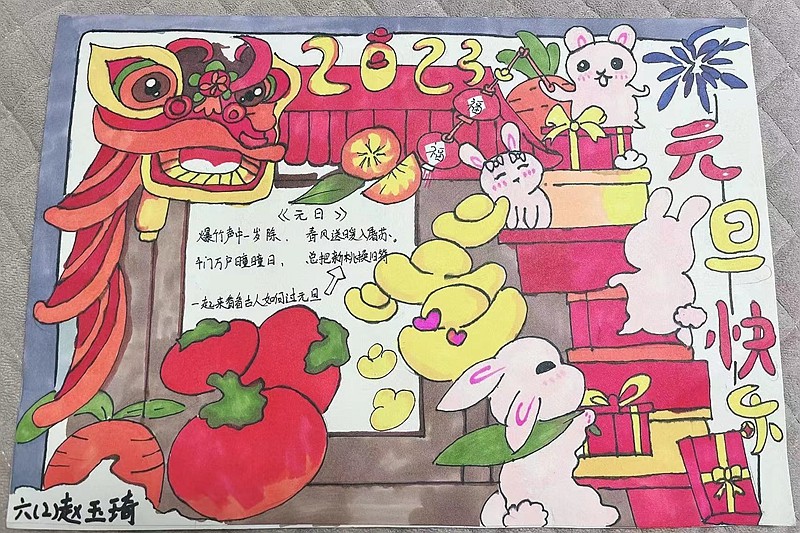 2023
福
福
元旦快乐
《元日》
爆竹声中一岁除、春风送暖入屠苏。
千门万户瞳瞳日，总把新桃换旧符
一起来看看古人如何过元旦
六(2)赵玉琦